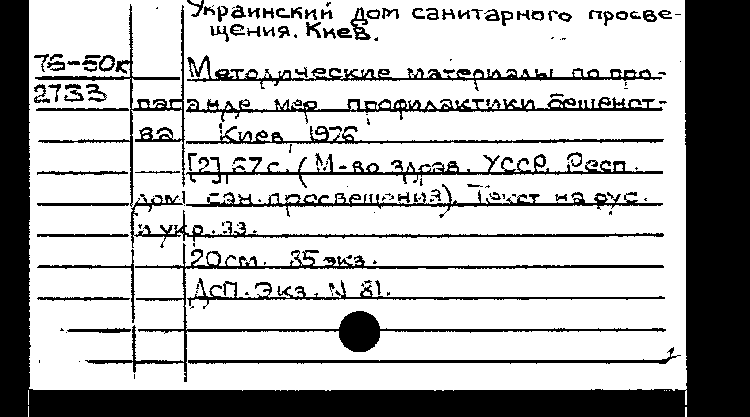 Украинский дом санитарного просве-
щения. Киев.
76-50к
Методические материалы по про-
2733
паганде мер профилактики бешенст-
ва Киев, 1976
[2], 67с. (М-во здрав. УССР. Респ.
дом сан. просвещения). Текст на рус.
и укр. яз.
20см. 85 экз.
ДСП. Экз. N 81.
1